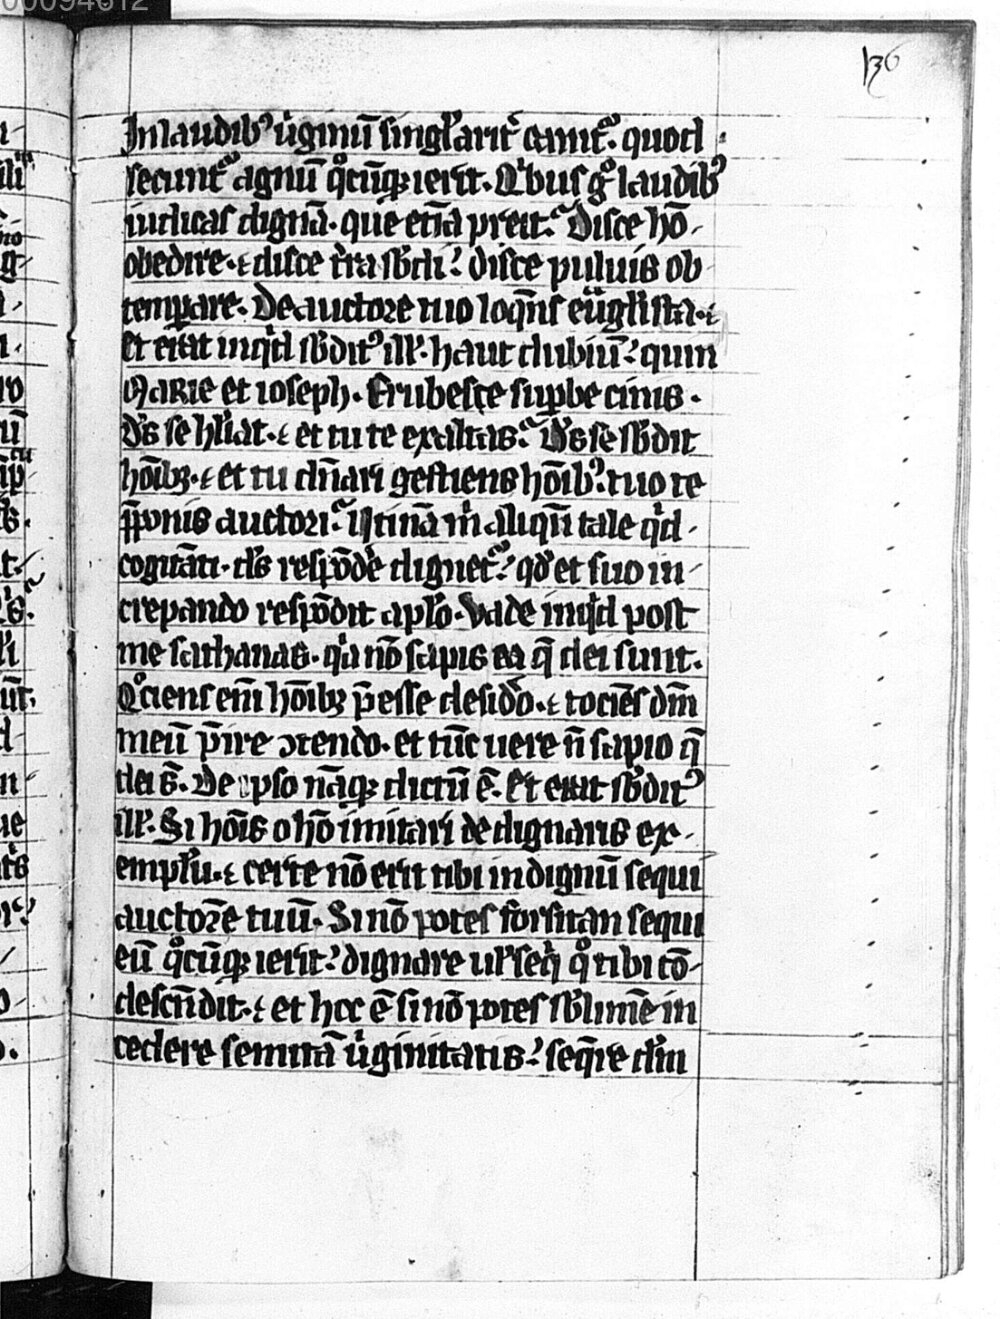 00094612
136
In laudibꝰ ṽginũ singl̓arit᷑ canit᷑. quod
secunt᷑ agnũ qͦcũqꝫ ierit. Qͥbus gͦ laudibꝰ
iudicas dignã. que etiã preit᷑. Disce hõ
obedire. ⁊ disce t̓ra sb̓di. Disce puluis ob
temꝑare. De auctore tuo loqñs eũgl̓ista. ⁊
Et erat inqͥd sb̓ditꝰ ill̓. haut dubiũ. quin
Marie et ioseph. Erubesce suꝑbe cinis.
Ds̃ se hũiliat. ⁊ et tu te exaltas. Ds̃ se sb̓dit
hõibꝫ. ⁊ et tu dñari gestiens hõibꝰ. tuo te
p̃ponis auctori. Utinã m̃ aliqñ tale qͥd
cogitãti. ds̃ respõde̓ dignet᷑. qđ et suo in
crepando respõdit apl̓o. Vade inqͥd post
me sathanas. qͥa nõ sapis ea q̃ dei sunt.
Qͦciens em̃ hõibꝫ p̃esse desid̓o. ⁊ tociẽs dm̃
meũ p̃ire ↄtendo. et tũc uere ñ sapio q̃
dei s̃. De ipso nãqꝫ dictũ ẽ. Et erat sb̓ditꝰ
ill̓. Si hõis o hõ imitari dedignaris ex
empl̓u. ⁊ certe nõ erit tibi indignũ sequi
auctorẽ tuũ. Si nõ potes forsitan sequi
eũ qͦcũqꝫ ierit. dignare ul̓ seqͥ qͦ tibi cõ
descẽdit. ⁊ et hoc ẽ si nõ potes sb̓limẽ in
cedere semitã ṽginitatis. seq̃re dm̃